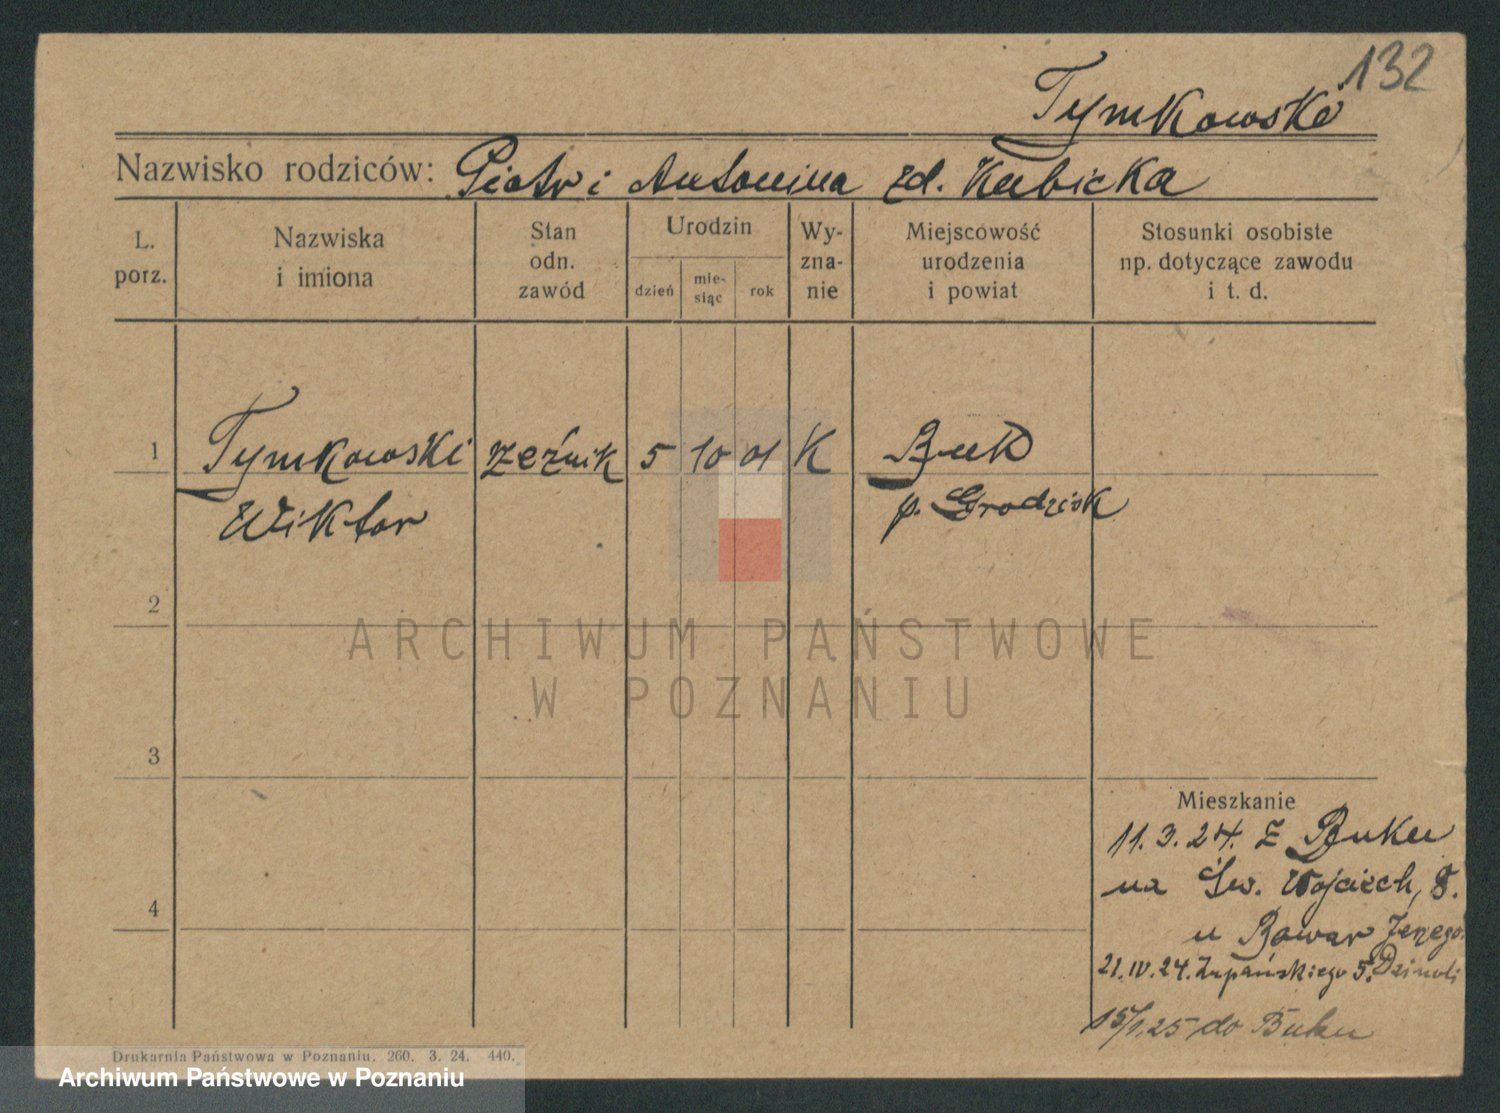 132
Tymkowski
Nazwisko rodziców: Piotr i Antonina zd. Kubicka
L. porz.
Nazwiska i imiona
Stan odn. zawód
Urodzin
dzień
mie-siąc
rok
Wy-zna-nie
Miejscowość urodzenia i powiat
Stosunki osobiste np. dotyczące zawodu i t. d.
1 Tymkowski rzeźnik 5 10 01 K Buk
Wiktor p. Grodzisk
2
ARCHIWUM PAŃSTWOWE
W POZNANIU
3
Mieszkanie
11.3.24. z Buku
na Św. Wojciech, 8.
u Bowar Jerzego
4
21.IV.24. Żupańskiego 5.
15/1.25 do Buku
Drukarnia Państwowa w Poznaniu. 260. 3. 24. 440.
Archiwum Państwowe w Poznaniu